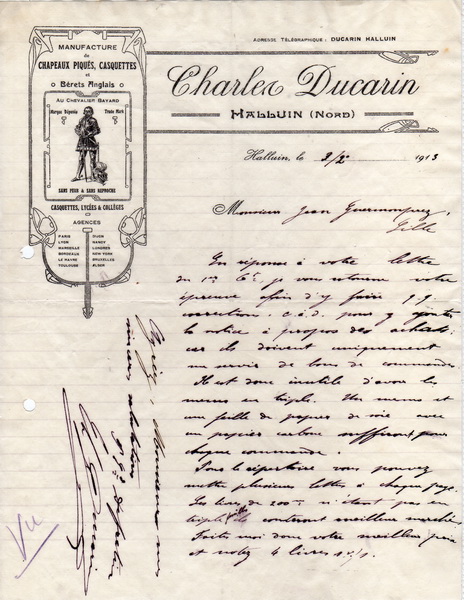 ADRESSE TÉLÉGRAPHIQUE : DUCARIN HALLUIN
MANUFACTURE
de
CHAPEAUX PIQUÉS, CASQUETTES
et
Bérets Anglais
AU CHEVALIER BAYARD
Marque Déposée Trade Mark
SANS PEUR & SANS REPROCHE
CASQUETTES, LYCÉES & COLLÈGES
AGENCES
PARIS DIJON
LYON NANCY
MARSEILLE LONDRES
BORDEAUX NEW YORK
LE HAVRE BRUXELLES
TOULOUSE ALGER
Charles Ducarin
HALLUIN (NORD)
Halluin, le 3/2 1913
Monsieur Jean
En réponse à votre lettre
du 1er Ct, je vous retourne votre
épreuve afin d'y faire
correction. c.à.d. pour y ajouter
la notice à propos des achats
car ils doivent uniquement
au service de bons de commandes
Il est donc inutile d'avoir les
mêmes en triple. Un même et
une feuille de papier de soie avec
un papier carbone suffiront pour
chaque commande.
Pour le répertoire vous pouvez
mettre plusieurs lettres à chaque page.
Les livres de 200 n'étant pas en
triple coûteront meilleur marché
Faites moi donc votre meilleur prix
et notez 4 livres
Agréez, Monsieur
mes salutations
Vu